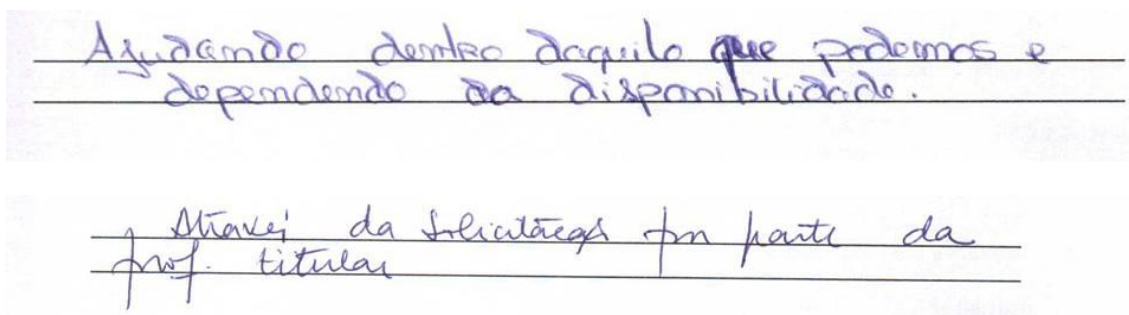 Ajudando dentro daquilo que podemos e
dependendo da disponibilidade.
Através da solicitação por parte da
prof. titular